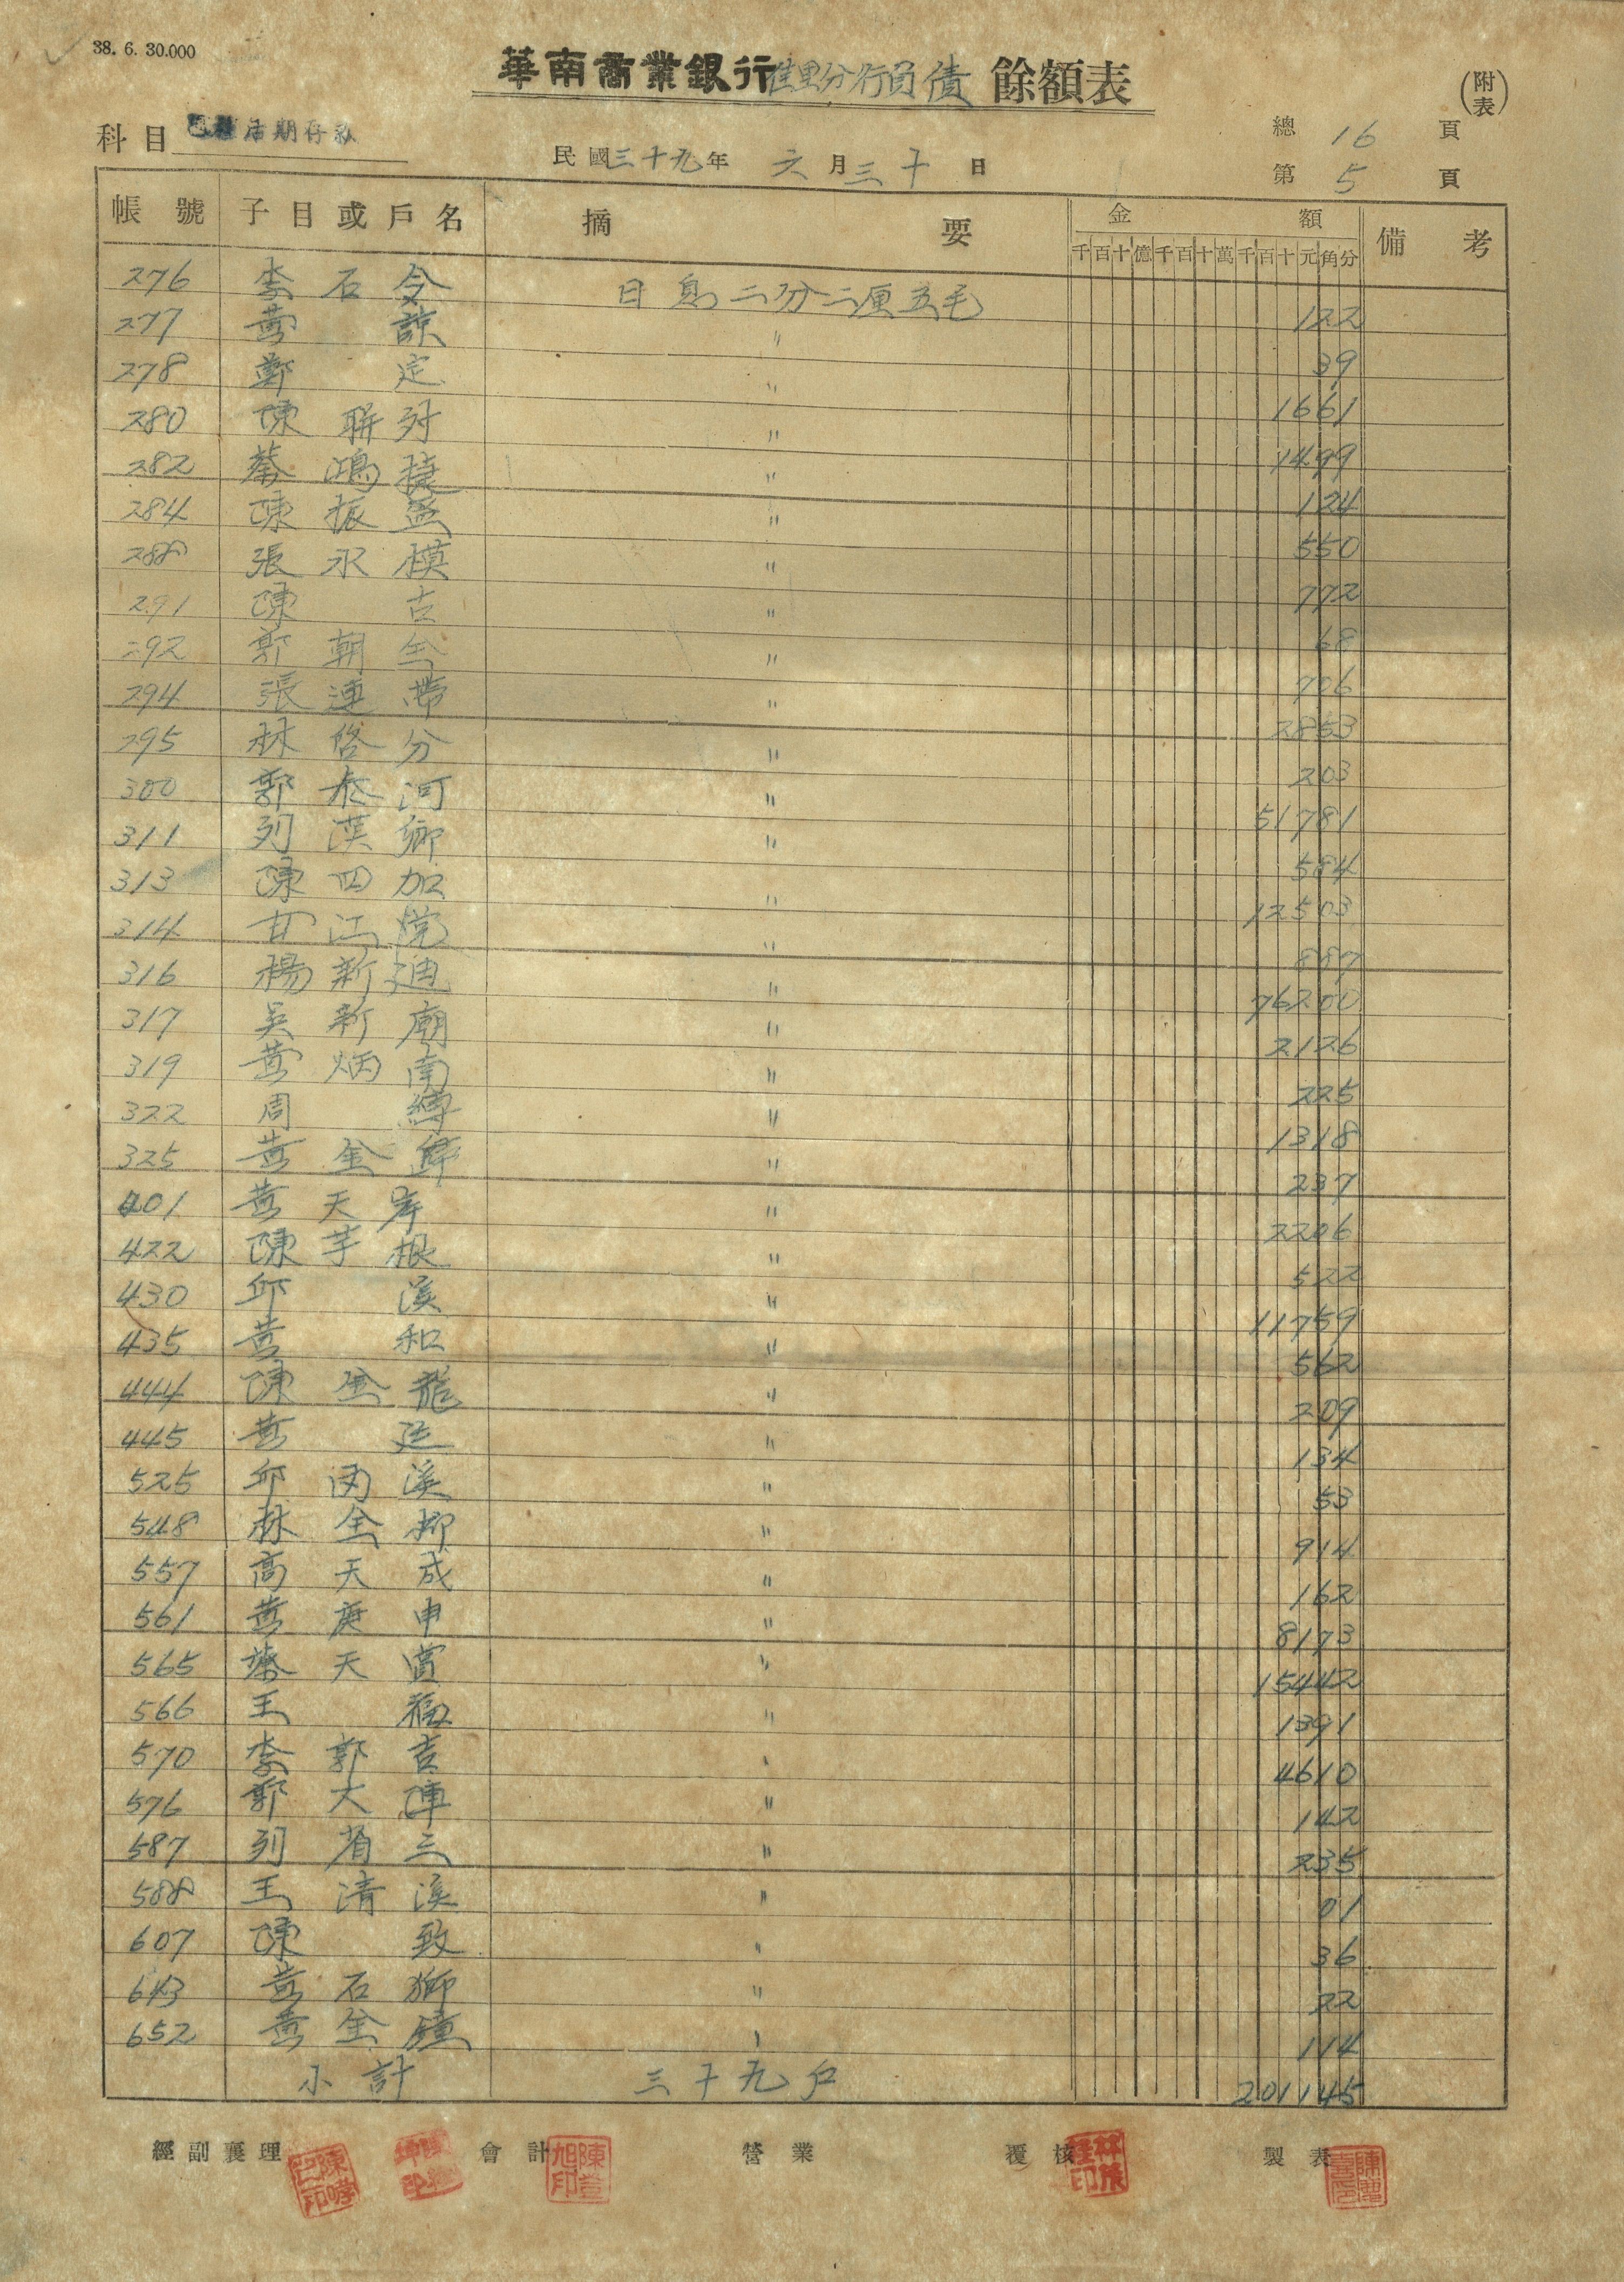 38. 6. 30.000
華南商業銀行佳里分行負債 餘額表
(附表)
科目 活期存款
民國三十九年 六月三十日
總 16 頁
第 5 頁
帳號 子目或戶名 摘要 金額 備考
千百十億千百十萬千百十元角分
276 李石令 日息二分二厘五毛 122
277 黃諒 〃 39
278 鄭定 〃 1661
280 陳聯對 〃 1499
282 蔡鴻捷 〃 124
284 陳振盛 〃 550
288 張永模 〃 772
291 陳古 〃 68
292 郭朝全 〃 706
294 張連帶 〃 2853
295 林啓分 〃 203
300 郭泰河 〃 51781
311 列漢鄉 〃 584
313 陳四加 〃 12503
314 甘江 〃 887
316 楊新迪 〃 76200
317 吳新廟 〃 2126
319 黃炳南 〃 225
322 周縛 〃 1318
325 黃金 〃 237
401 黃天岸 〃 2206
422 陳芋根 〃 522
430 邱溪 〃 11759
435 黃和 〃 562
444 陳金龍 〃 209
445 黃廷 〃 134
525 邱丙溪 〃 53
548 林全柳 〃 914
557 高天成 〃 162
561 黃庚申 〃 8173
565 天賞 〃 15442
566 王福 〃 1391
570 李郭吉 〃 4610
576 郭大陣 〃 142
587 列省三 〃 235
588 王清溪 〃 01
607 陳致 〃 36
643 黃石獅 〃 22
652 黃金鐘 〃 114
小計 三十九戶 201145
經副襄理 會計 營業 覆核 製表